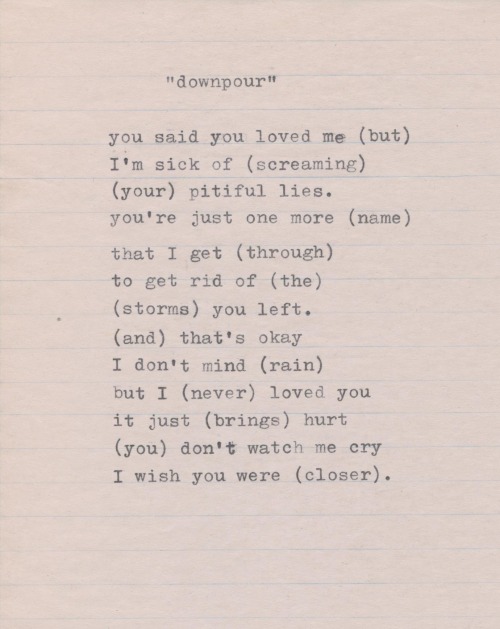 "downpour"
you said you loved me (but)
I'm sick of (screaming)
(your) pitiful lies.
you're just one more (name)
that I get (through)
to get rid of (the)
(storms) you left.
(and) that's okay
I don't mind (rain)
but I (never) loved you
it just (brings) hurt
(you) don't watch me cry
I wish you were (closer).